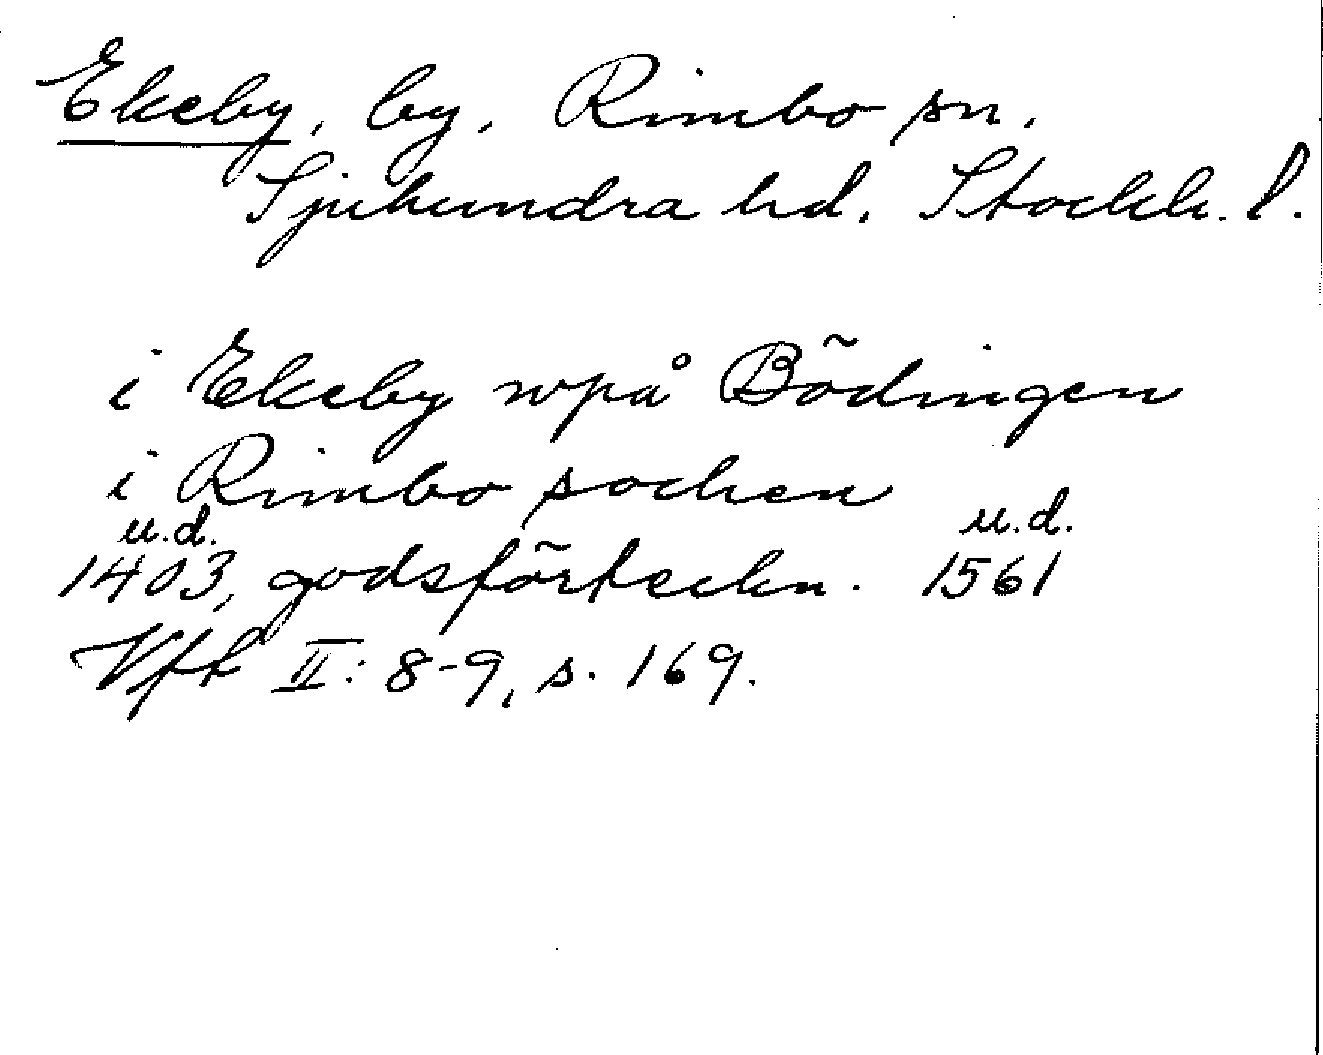 Ekeby, by, Rimbo sn.
Sjuhundra hd, Stockh. l.
i Ekeby wpå Bödingen
i Rimbo sochen
u.d. u.d.
1403, godsförteckn. 1561
Vft II: 8-9, s. 169.